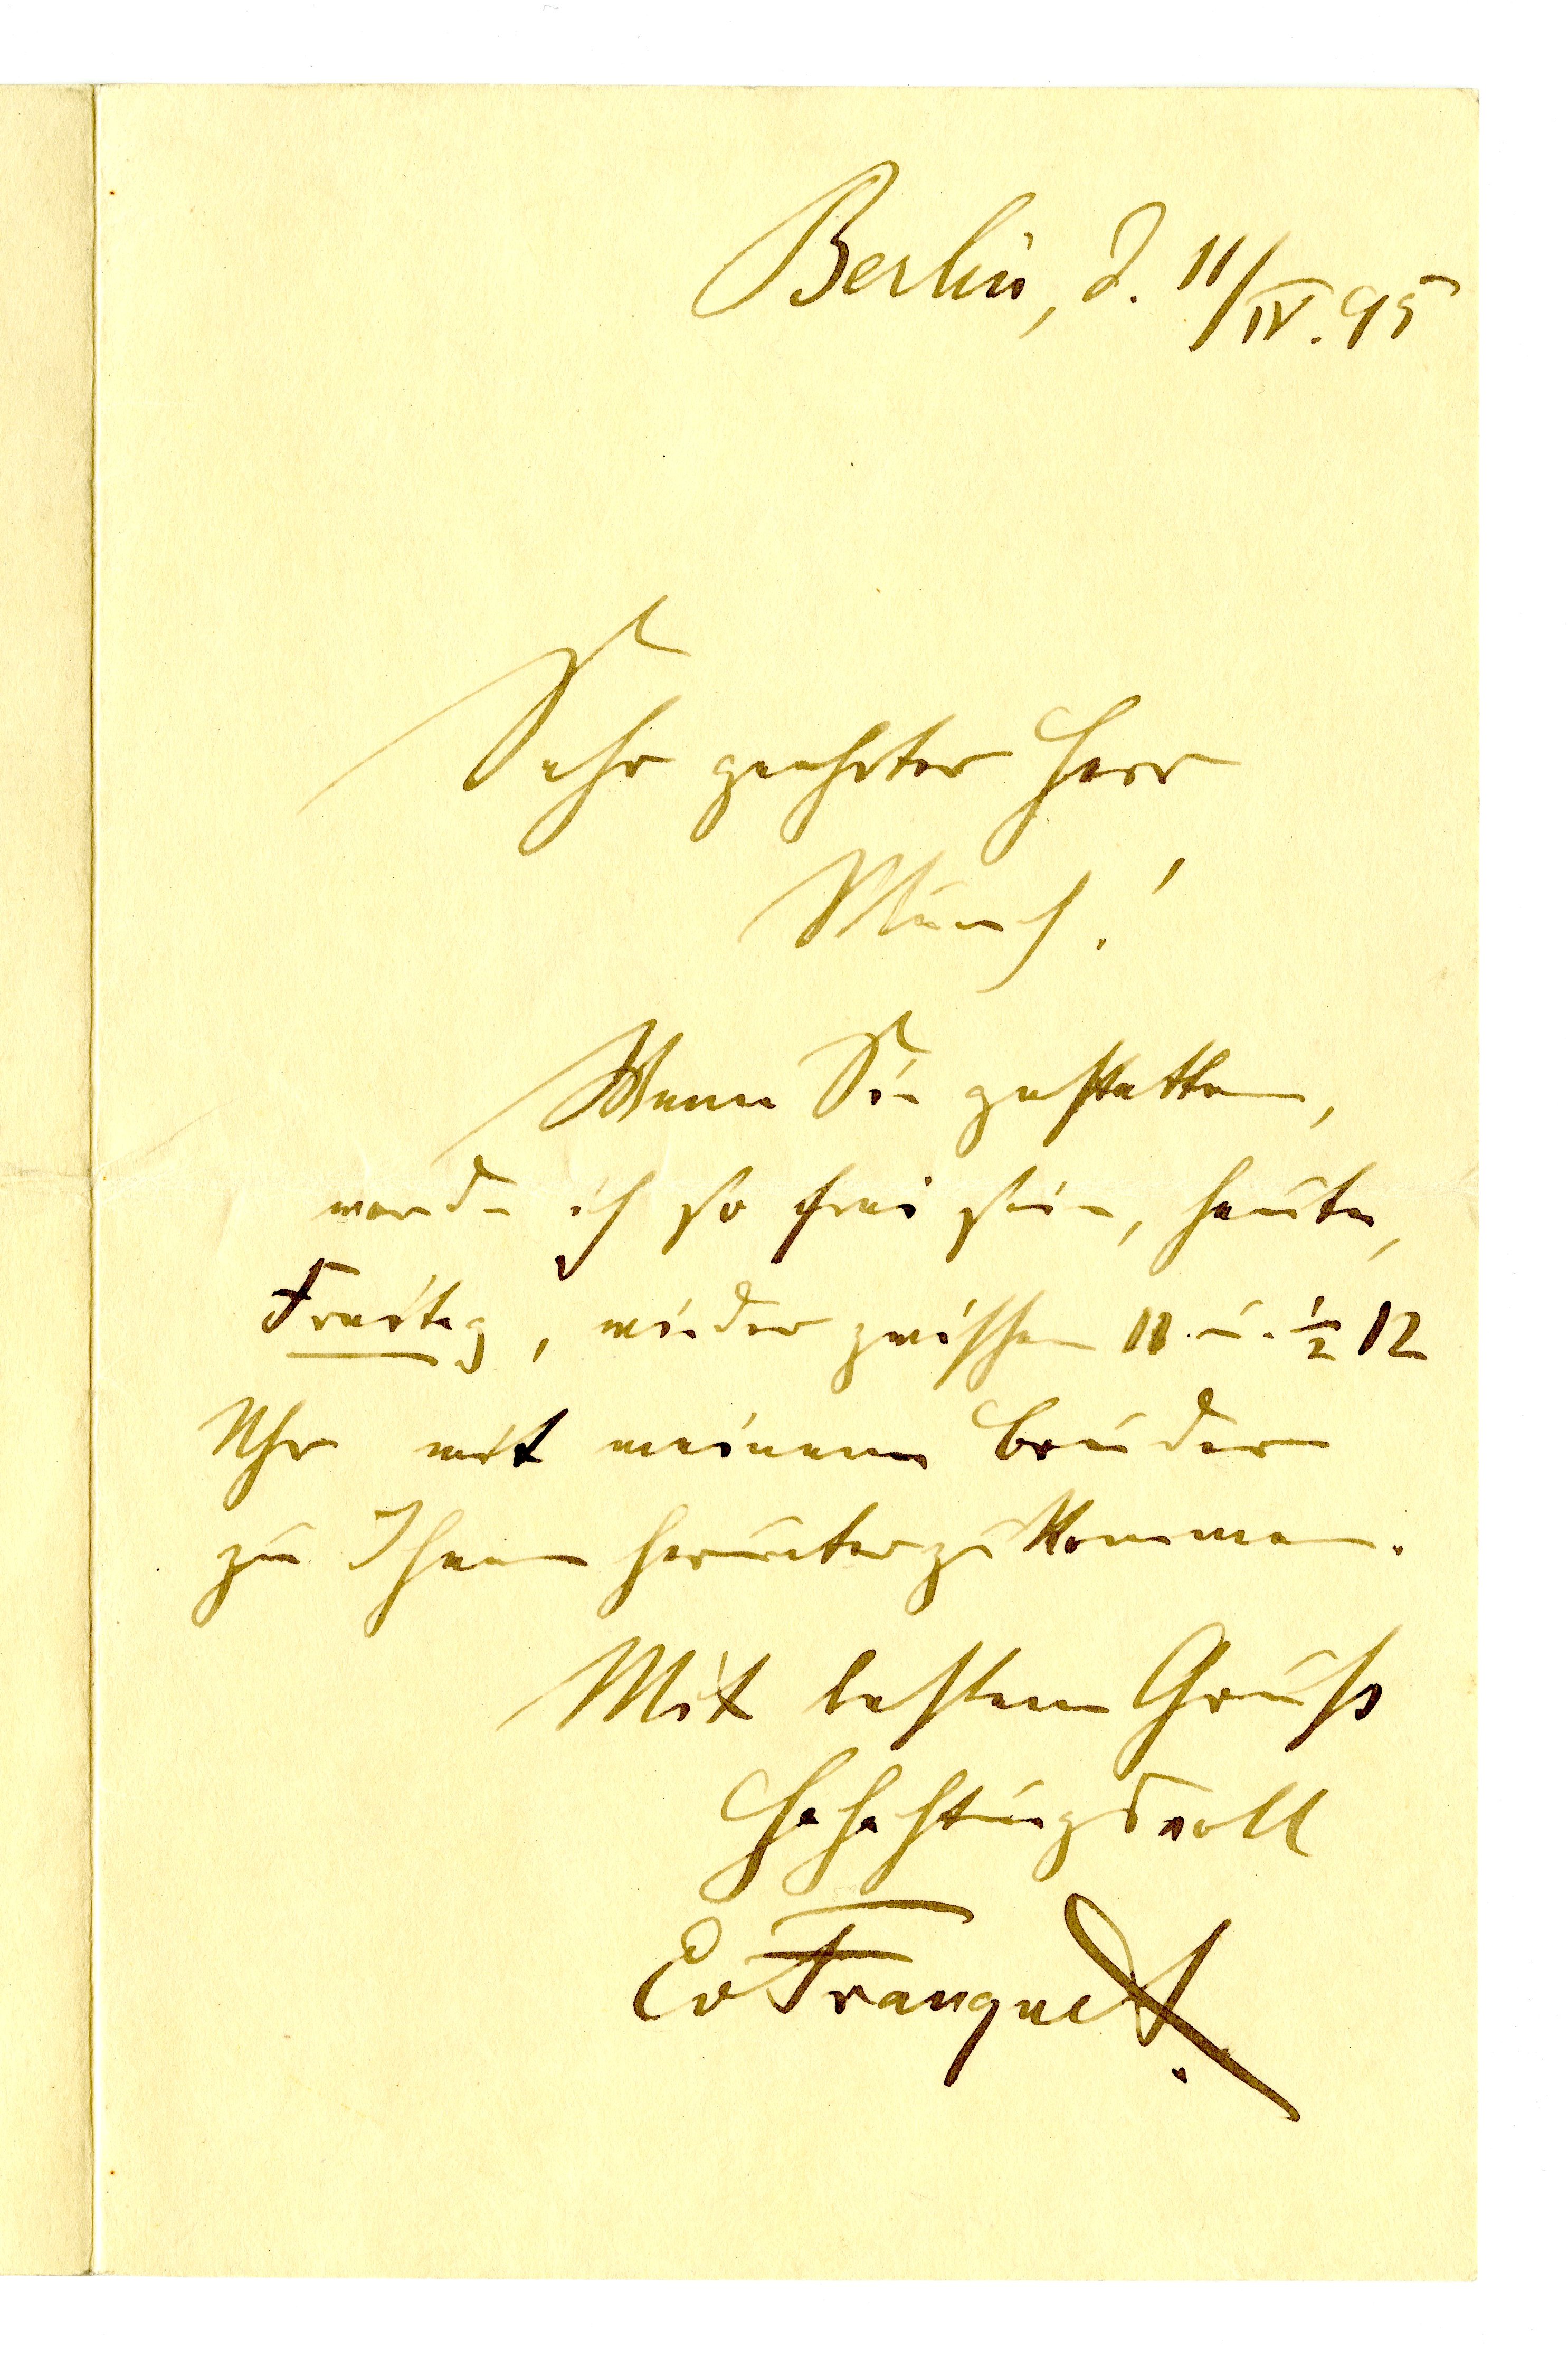 Berlin, d. 11/IV. 95
Sehr geehrter Herr
Munch!
Wenn Sie gestatten,
werde ich so frei sein, heute,
Freitag, wieder zwischen 11 u. ½ 12
Uhr mit meinem Bruder
zu Ihnen herunterzukommen.
Mit bestem Gruß
Hochachtungsvoll
EvFranquet.